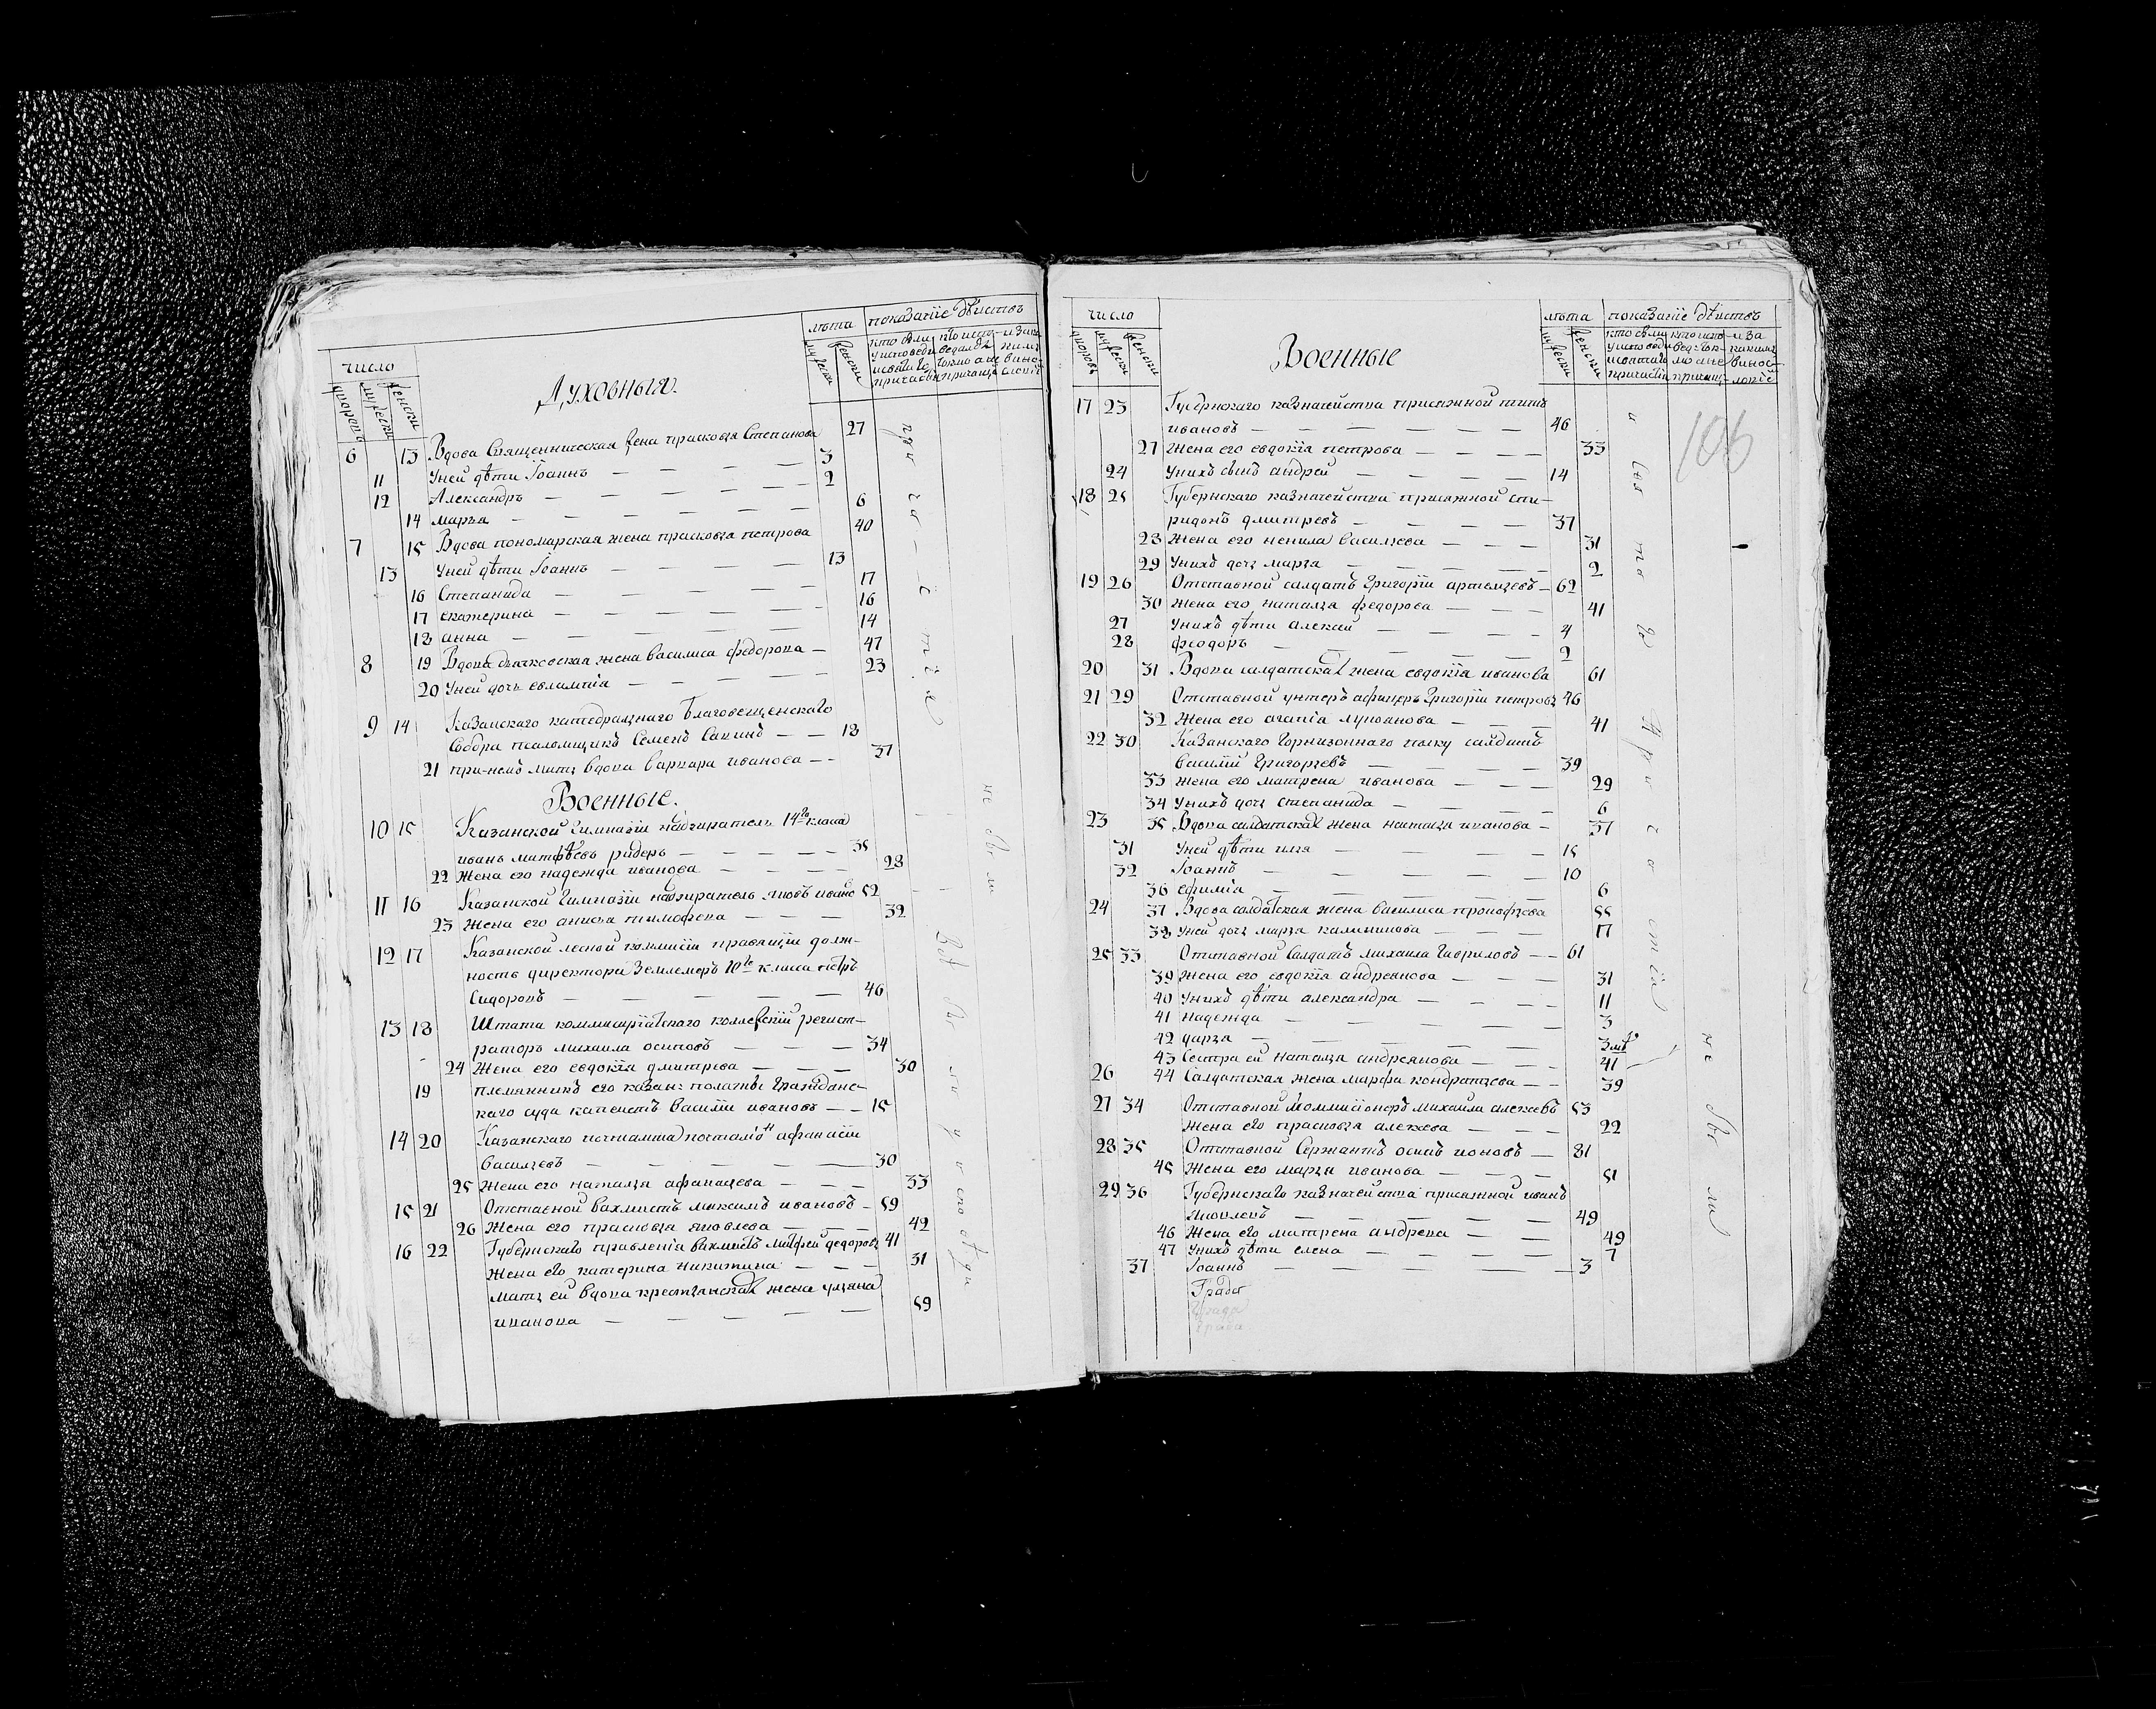 число
Духовныя.
лѣта показаніе дѣиствъ
6 13 Вдова Священническая жена прасковя Степанова 27
11 Уней дѣти Іоаннъ 3
12 Александръ 2
14 марья 6
7 15 Вдова пономарская жена прасковя петрова 40
13 Уней дѣти Іоаннъ 13
16 Степанида 17
17 екатерина 16
18 анна 14
8 19 Вдова дьячковская жена василиса федорова 47
20 Уней дочь евлампія 23
9 14 Казанскаго катедралнаго благовещенскаго
Собора псаломщикъ Семенъ 18
21 при немъ мать вдова варвара иванова 37
Военные.
10 15 Казанской гимназіи надзиратель 14го класа
иванъ матфѣевъ ридеръ 35
22 Жена его надежда иванова 28
11 16 Казанской Гимназіи надзиратель яковъ ивано 52
23 Жена его анисья тимофеева 32
12 17 Казанской лесной коммисіи правящіи долж-
ность директора Землемеръ 10го класа петръ
Сидоровъ 46
13 18 Штата коммисаріатскаго коллежскіи регист-
раторъ михаила осиповъ 34
24 Жена его евдокія дмитрева 30
19 племянникъ его казан: полаты гражданс-
каго суда капеистъ василіи ивановъ 15
14 20 Казанскаго почтамта почталіонъ афанасіи
васильевъ 30
25 Жена его наталья афанасьева 33
15 21 Отставной вахмистъ максимъ ивановъ 59
26 Жена его прасковья яковлева 42
16 22 Губернскаго правленія вахмистъ матфеи федоровъ 41
Жена его катерина никитина 31
мать ей вдова крестьянская жена ульяна
иванова 59
число
Военные
лѣта показаніе дѣиствъ
106
17 23 Губернскаго казначейства присяжной
ивановъ 46
27 Жена его евдокія петрова 33
24 Унихъ сынъ андреи 14
18 25 Губернскаго казначейства присяжной спи-
ридонъ дмитревъ 37
28 Жена его ненила васильева 31
29 Унихъ дочь марья 2
19 26 Отставной салдатъ григоріи артемьевъ 62
30 Жена его наталья федорова 41
27 Унихъ дѣти алексей 4
28 феодоръ 2
20 31 Вдова салдатская жена евдокія иванова 61
21 29 Отставной унтеръ афицеръ григоріи петровъ 46
32 Жена его агапіа лукоянова 41
22 30 Казанскаго Горнизоннаго полку салдатъ
василіи григорьевъ 39
33 Жена его матрена иванова 29
34 Унихъ дочь степанида 6
23 35 Вдова салдатская жена наталья иванова 37
31 Уней дѣти илья 15
32 Іоаннъ 10
36 ефимія 6
24 37 Вдова салдатская жена василиса прокофьева 55
38 Уней дочь марья калиникова 17
25 33 Отставной Салдатъ михаила Гавриловъ 61
39 Жена его евдокія андреянова 31
40 Унихъ дѣти александра 11
41 надежда 3
42 дарья 3
43 Сестра ей наталья андреянова 41
26 44 Салдатская жена марфа кондратьева 39
27 34 Отставной коммисіонеръ михаила алексевъ 53
Жена его прасковья алексева 22
28 35 Отставной Сержантъ осипъ ионовъ 81
45 Жена его марья иванова 51
29 36 Губернскаго казначейства присяжной иванъ
Яковлевъ 49
46 Жена его матрена андрева 49
47 Унихъ дѣти елена 7
37 Іоаннъ 3
Града